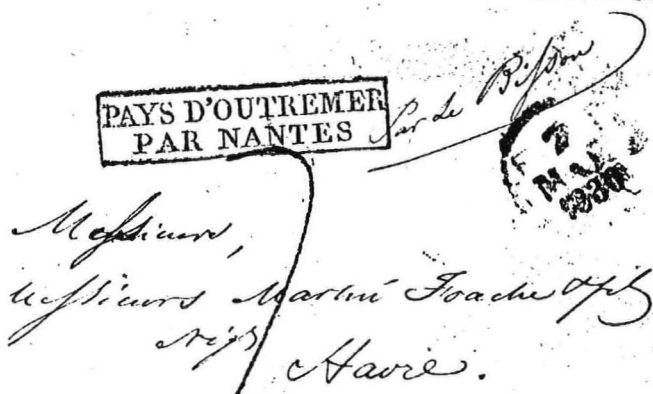 PAYS D'OUTREMER
PAR NANTES
Par Le Bisson
7
MAI
1830
7
Messieurs,
Messieurs Martin Foache & fils
Havre.